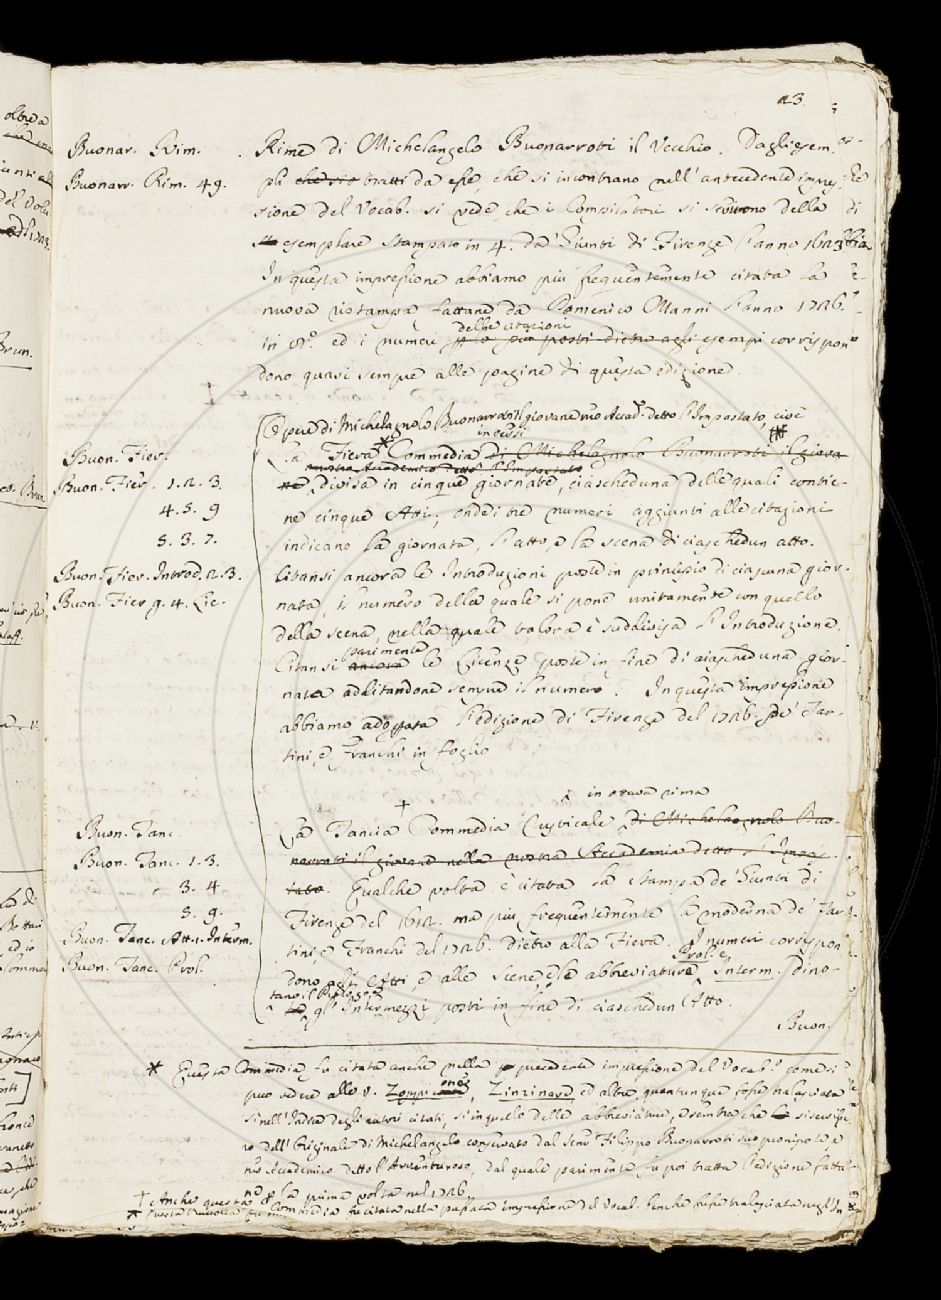 23
Buonar. Rim. . Rime di Michelangelo Buonarroti il Vecchio. Dagli esem-
Buonarr. Rim. 49. pli tratti da esse, che si incontrano nell'antecedente impres-
sione del Vocab. si vede, che i Compilatori si servirono della
esemplare stampato in 4. da' Giunti di Firenze l'anno 1623
In questa impressione abbiamo più frequentemente citata la
nuova ristampa fattane da Domenico Manni l'anno 1726.
delle citazioni
in 8.º ed i numeri posti dietro agli esempi corrispon
dono quasi sempre alle pagine di questa edizione.
Opere di Michelagnolo Buonarroti il giovane nro Accad. detto l'Impastato, cioè
in versi
Buon. Fier. La Fiera Commedia di Michelagnolo Buonarroti il giova
nostro Accademico detto l'Impastato
Buon. Fier. 1. 2. 3. ne divisa in cinque giornate, ciascheduna delle quali contie-
4. 5. 9 ne cinque Atti; onde i tre numeri aggiunti alle citazioni
5. 3. 7. indicano la giornata, l'atto, e la scena di ciaschedun atto.
Buon. Fier. Introd. 2. 3. Citansi ancora le Introduzioni poste in principio di ciascuna gior-
Buon. Fier. g. 4. Lic. nata, il numero della quale si pone unitamente con quello
della scena, nella quale talora è suddivisa l'Introduzione.
parimente
Citansi ancora le Licenze poste in fine di ciascheduna gior-
nata additandone sempre il numero. In questa impressione
abbiamo adoprata l'edizione di Firenze del 1726. de' Tar-
tini, e Franchi in foglio
in ottava rima
Buon. Tanc. La Tancia Commedia Rusticale di Michelagnolo Buo-
Buon. Tanc. 1. 3. narroti il giovane nella nostra Accademia detto l'Impas-
3. 4 tato. Qualche volta è citata la stampa de' Giunti di
5. 9. Firenze del 1612. ma più frequentemente la moderna de' Tar-
Buon. Tanc. Att. 1. Interm. tini e Franchi del 1726. dietro alla Fiera. I numeri corrispon
Prol. e
Buon. Tanc. Prol. dono agli Atti, e alle Scene, e le abbreviature Interm. dino-
tano il Prologo, e
gl'Intermezzi posti in fine di ciaschedun Atto.
Buon.
* Questa Commedia fu citata anche nella precedente impressione del Vocab.º come si
può vedere alle v. Zinzinare, ed altre, quantunque fosse tralasciata
sì nell'Indice degli autori citati, sì in quello delle abbreviature, e sembra che si servisse
ro dell'Originale di Michelangelo conservato dal Senr. Filippo Buonarroti suo pronipote e
nro Accademico detto l'Avventuroso, dal quale parimente fu poi tratta l'edizione fatta-
ne la prima volta nel 1726.
† Anche questa Commedia fu citata nella passata impressione del Vocab. benchè fosse tralasciata negl'In